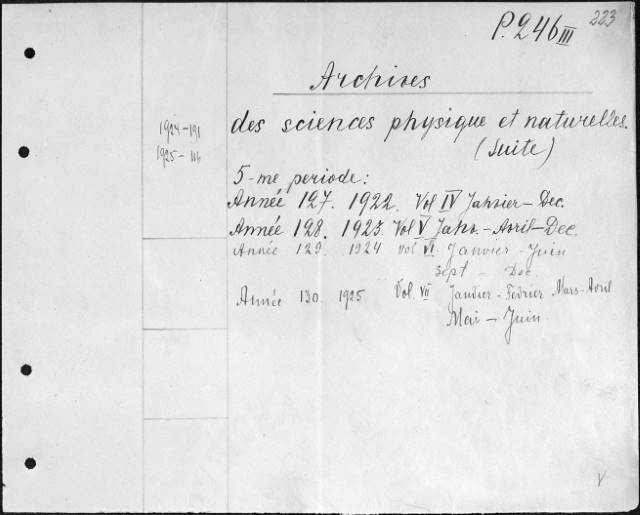 P.246 III 223
Archives
des sciences physique et naturelles.
(Suite)
1924-191
1925-166
5-me periode:
Année 127. 1922. Vol IV Janvier-Dec.
Année 128. 1923. Vol V Janv.-Avril-Dec.
Année 129. 1924 Vol VI. Janvier-Juin
Sept - Dec.
Année 130. 1925 Vol. VII Janvier-Février Mars-Avril
Mai - Juin.
V